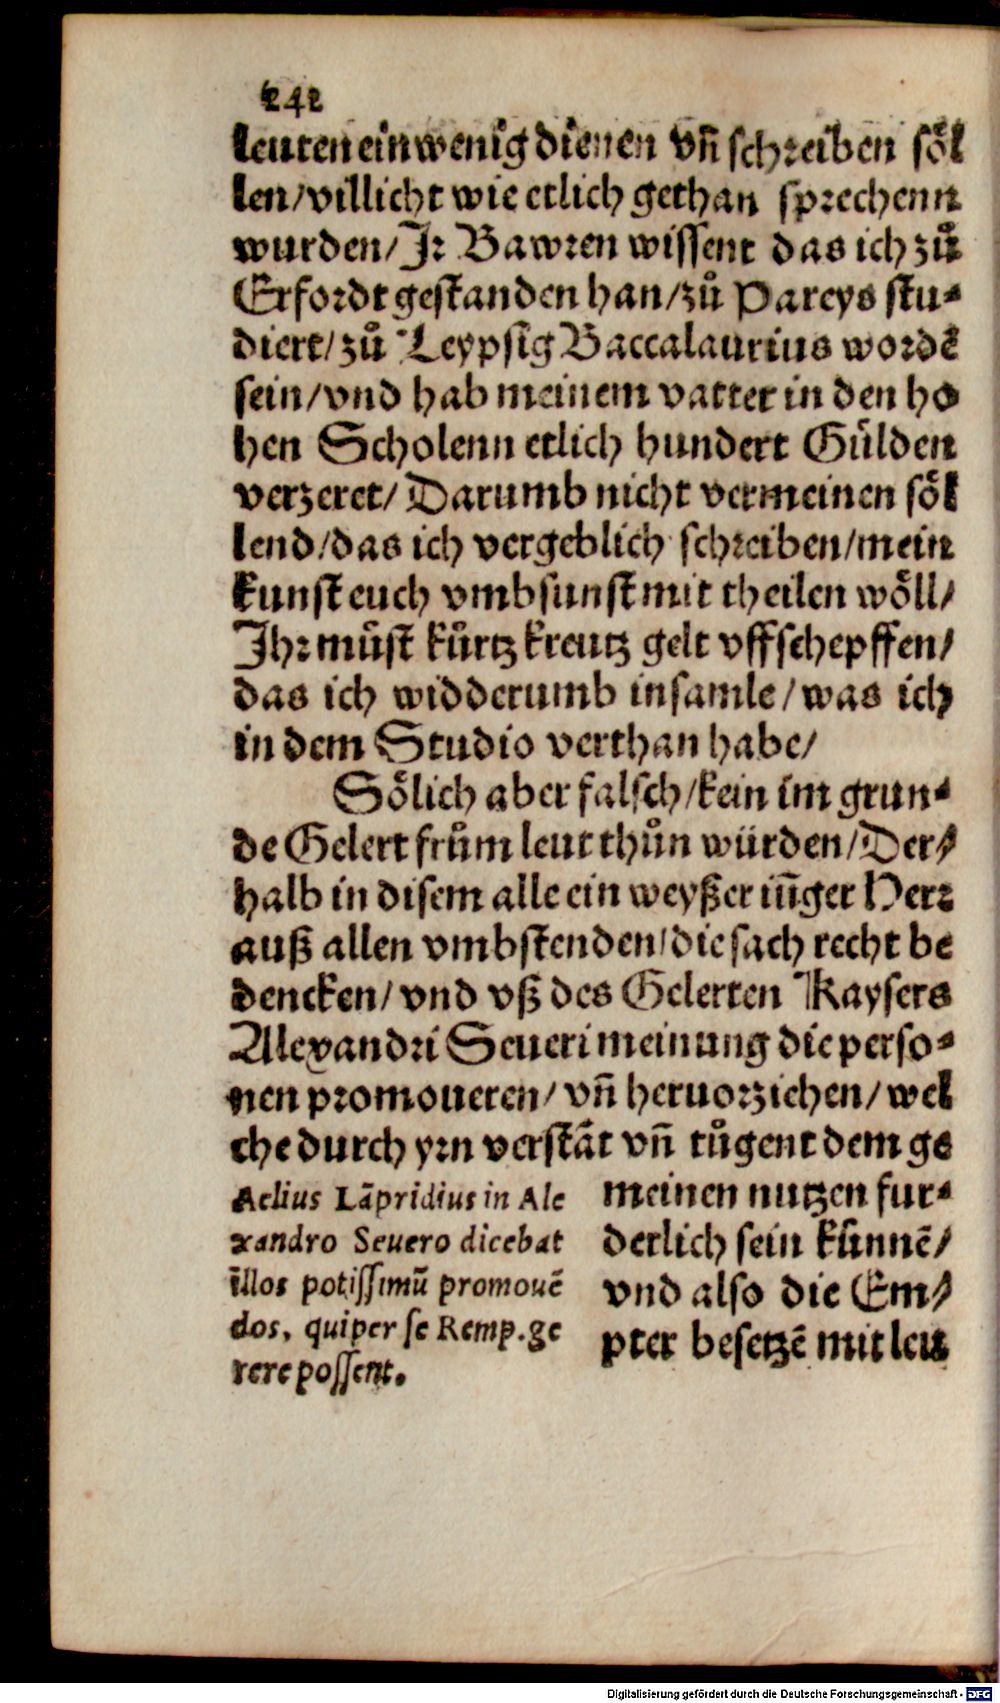 242
leuten ein wenig dienen vñ schreiben söl
len/villicht wie etlich gethan sprechenn
wurden/Jr Bawren wissent das ich zů
Erfordt gestanden han/zů Pareys stu⸗
diert/zů Leypsig Baccalaurius wordẽ
sein/vnd hab meinem vatter in den ho
hen Scholenn etlich hundert Gülden
verzeret/Darumb nicht vermeinen söl
lend/das ich vergeblich schreiben/mein
kunst euch vmbsunst mit theilen wöll/
Jhr můst kürtz kreutz gelt vffschepffen/
das ich widderumb insamle/was ich
in dem Studio verthan habe/
Sölich aber falsch/kein im grun⸗
de Gelert frům leut thůn würden/Der/
halb in disem alle ein weyßer iũger Herr
auß allen vmbstenden/die sach recht be
dencken/vnd vß des Gelerten Kaysers
Alexandri Seueri meinung die perso⸗
nen promoueren/vñ heruorziehen/wel
che durch yrn verstãt vñ tůgent dem ge
meinen nutzen fur⸗
derlich sein künnẽ/
vnd also die Em/
pter besetzẽ mit leu
Aelius Lãpridius in Ale
xandro Seuero dicebat
illos potissimũ promouẽ
dos, qui per se Remp. ge
rere possent.
Digitalisierung gefördert durch die Deutsche Forschungsgemeinschaft - DFG